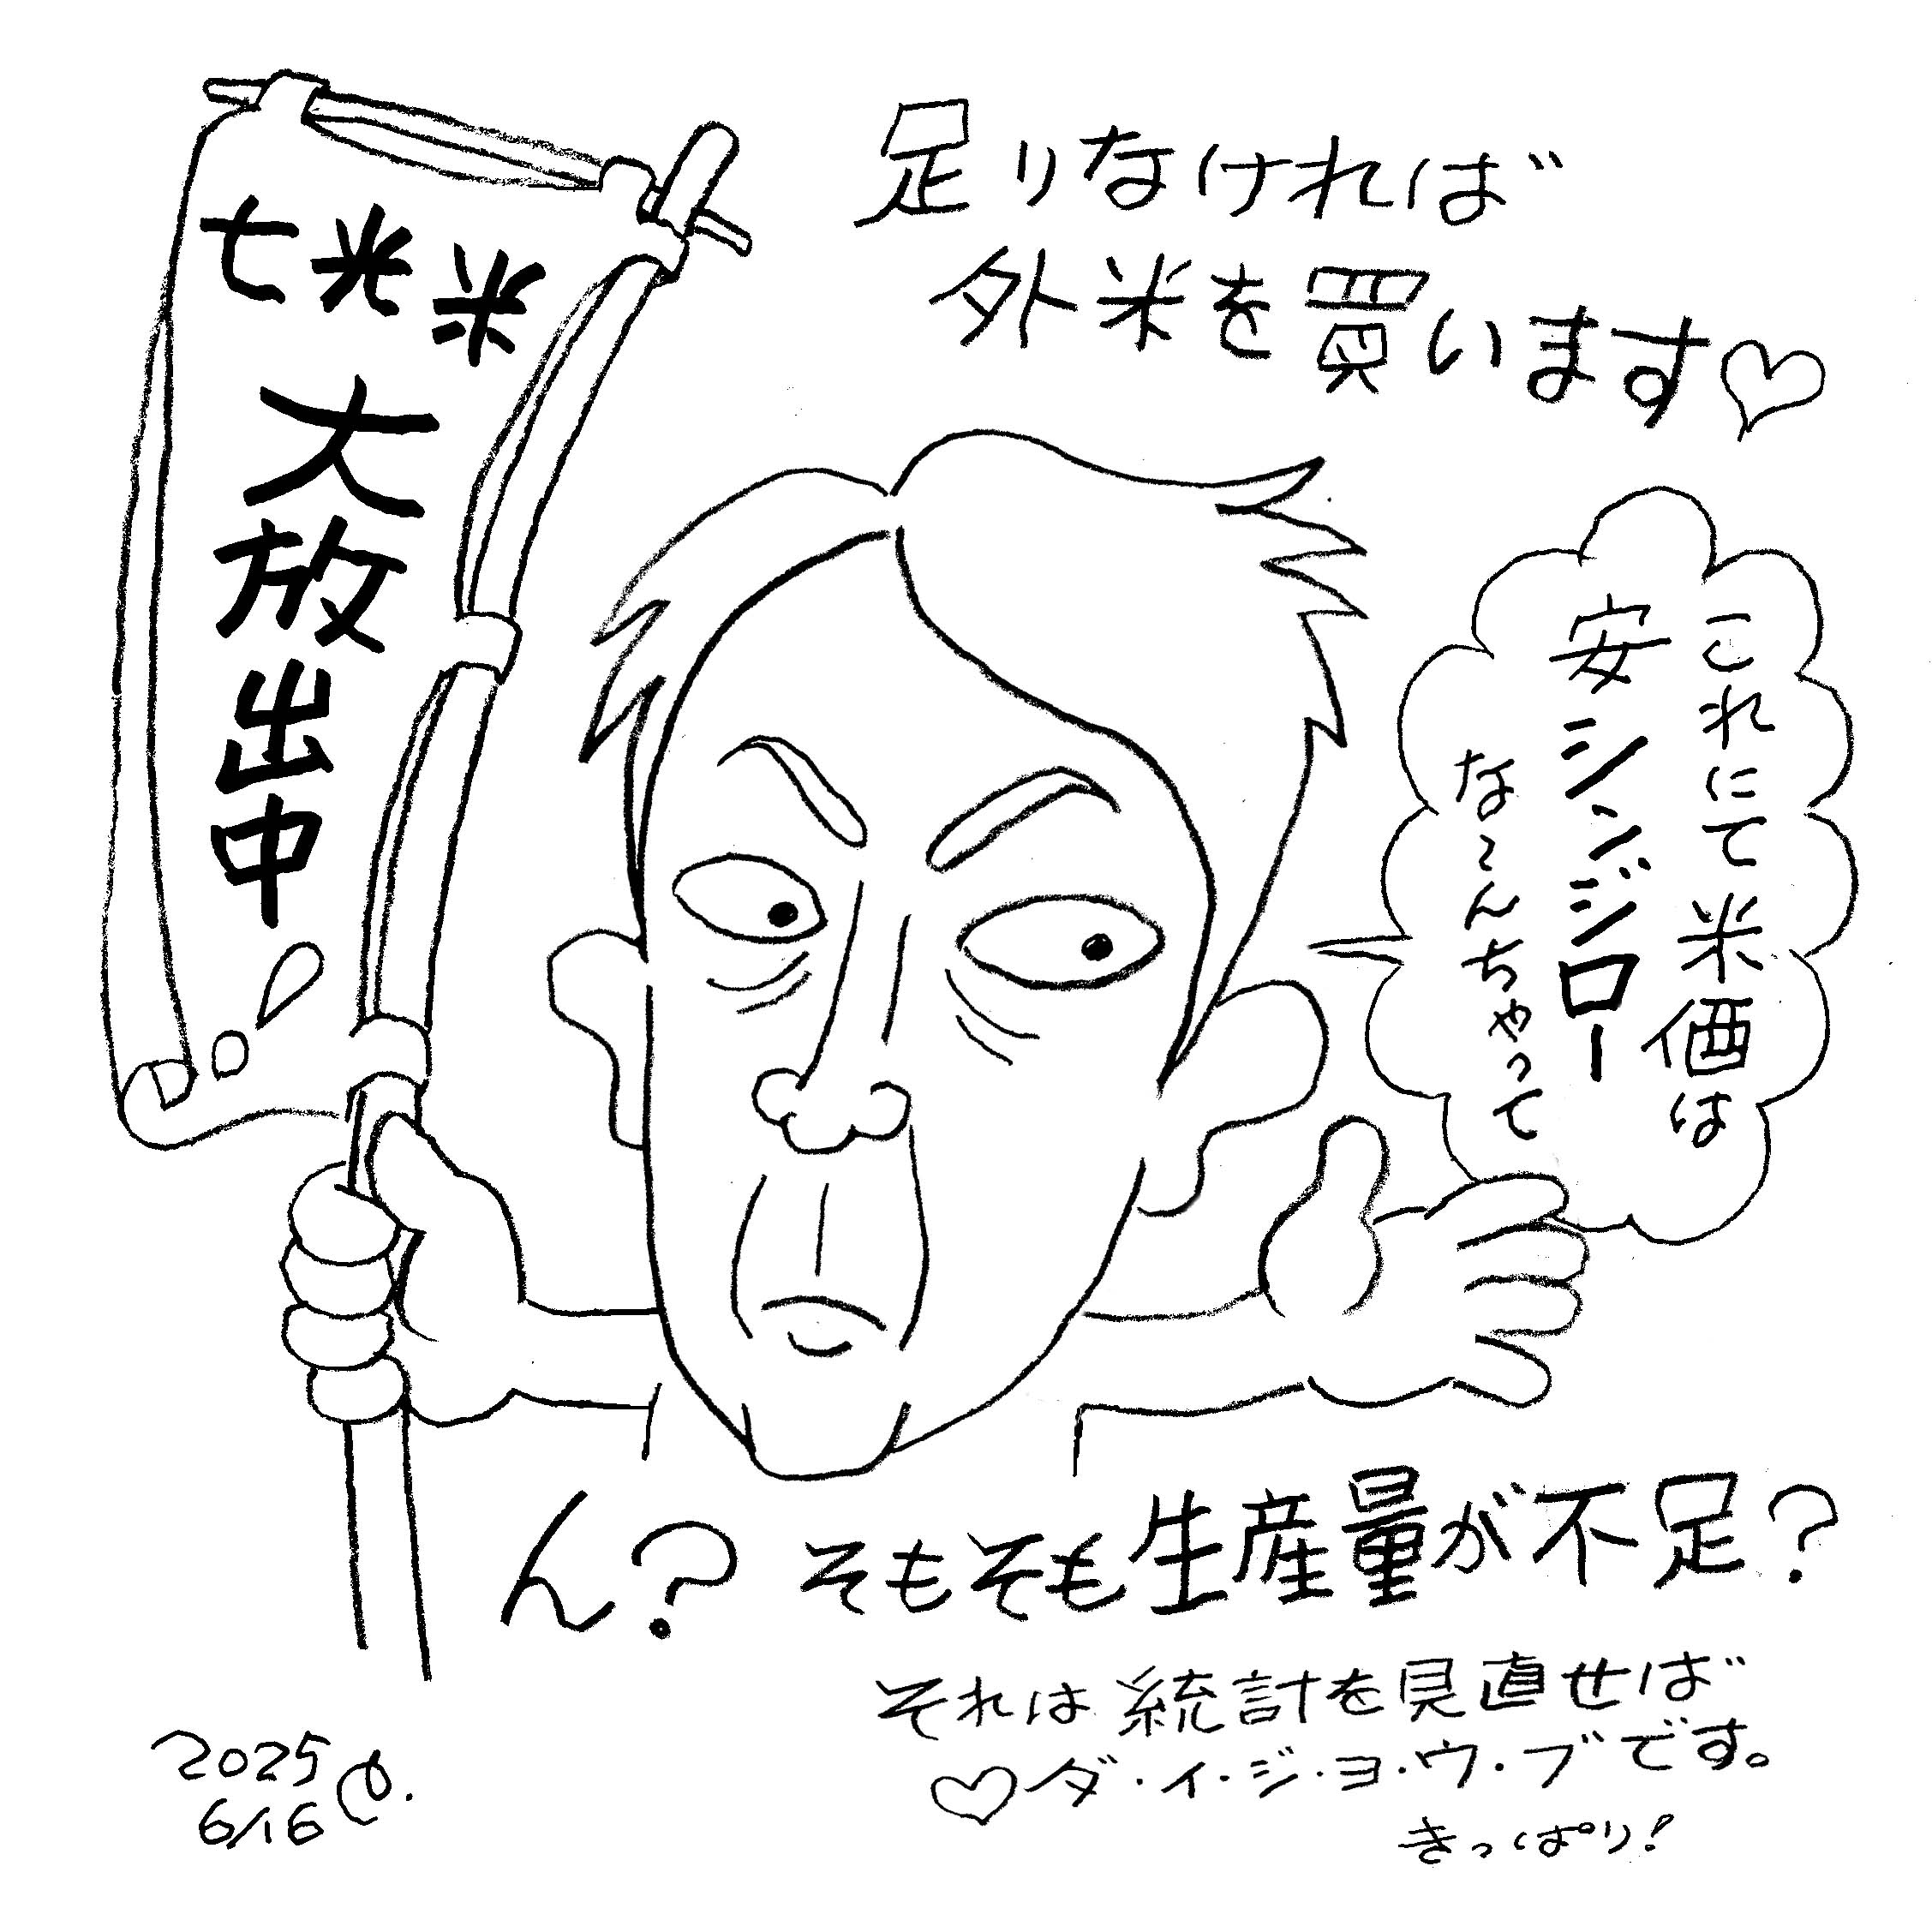 足りなければ
外米を買います♡
七光米
大放出中!
これにて米価は
安シンジロー
なーんちゃって
ん?そもそも生産量が不足?
それは統計を見直せば
♡ダ・イ・ジ・ョ・ウ・ブです。
きっぱり!
2025
6/16